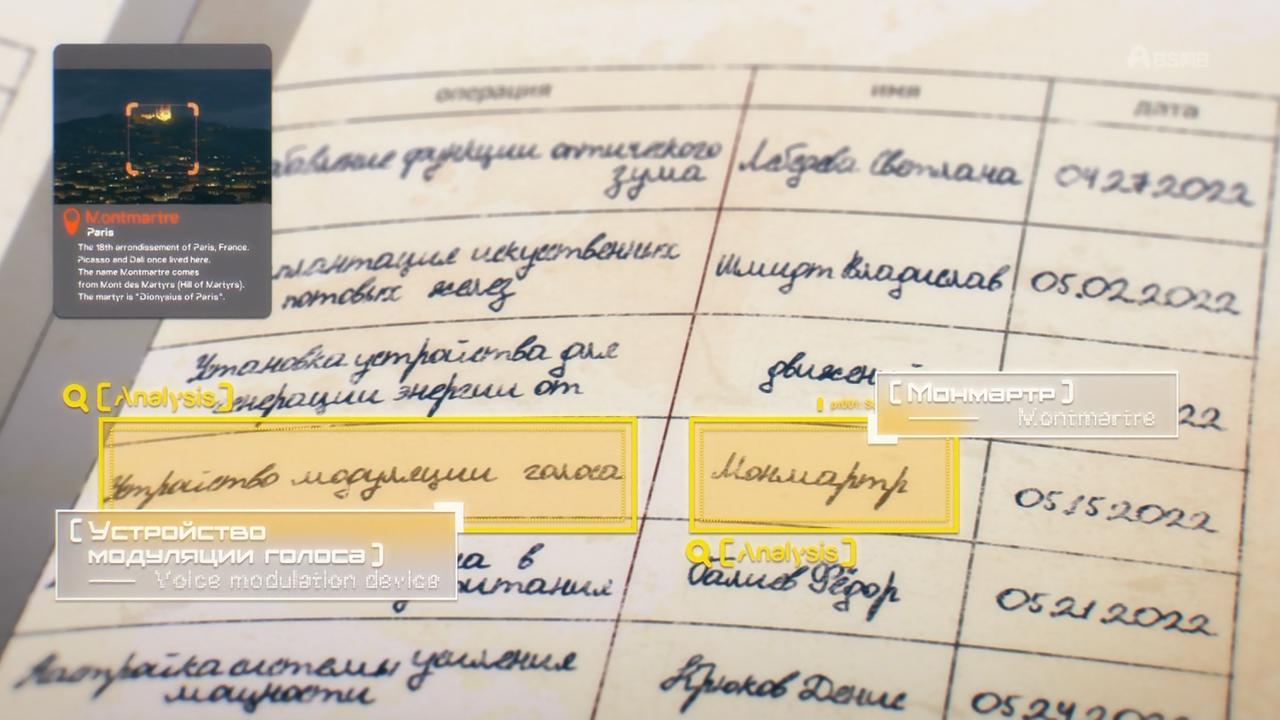 ABEMA
операция
имя
дата
функции оптического
зума
Лебедева Светлана
04 27 2022
искуственных
потовых желез
Шмидт Владислав
05.02.2022
Montmartre
Paris
The 18th arrondissement of Paris, France.
Picasso and Dali once lived here.
The name Montmartre comes
from Mont des Martyrs (Hill of Martyrs).
The martyr is "Dionysius of Paris".
Установка устройства для
энергии от
движен
22
[Analysis]
[Монмартр]
Montmartre
Устройство модуляции голоса
Монмартр
05.15.2022
[Устройство
модуляции голоса]
Voice modulation device
[Analysis]
в
Фёдор
05.21.2022
Настройка системы усиления
мощности
Крюков Денис
05.24.2022